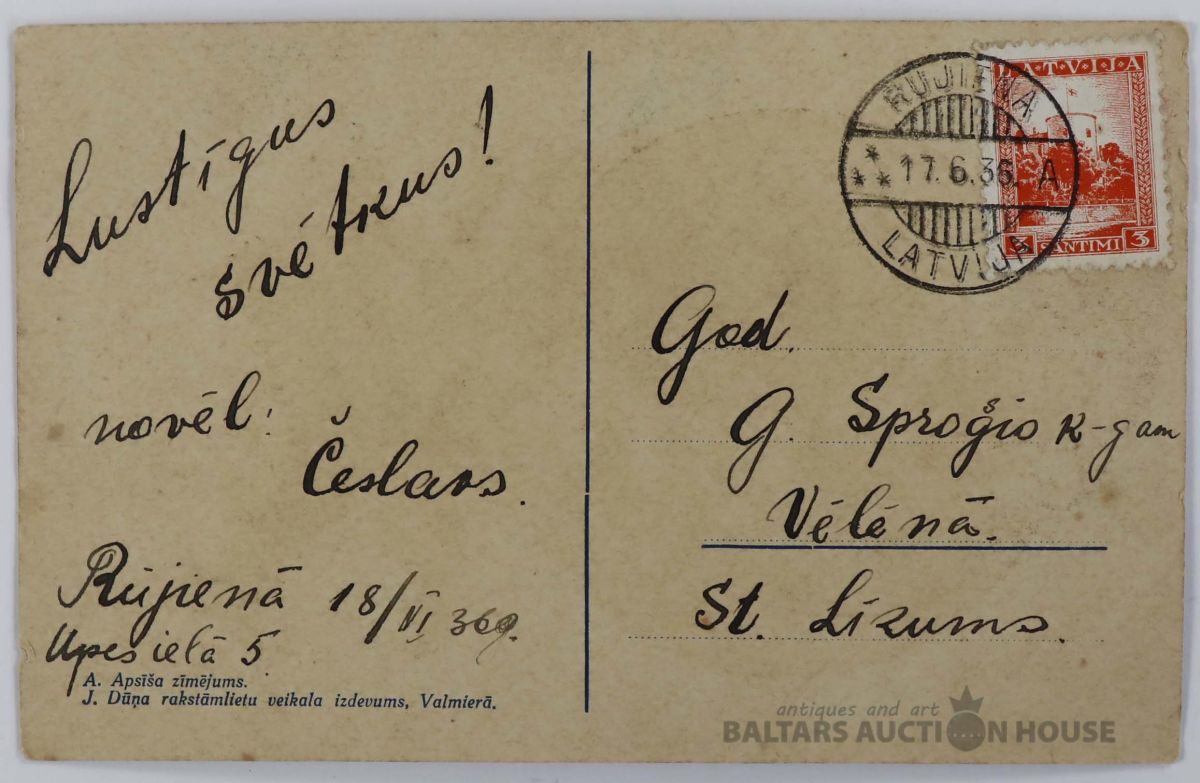 Lustīgus
svētkus!
novēl:
Česlavs.
Rūjienā 18/VI 36g.
Upes ielā 5
A. Apsīša zīmējums.
J. Dūņa rakstāmlietu veikala izdevums, Valmierā.
RUJIENA
17.6.36. A
LATVIJA
LATVIJA
3 SANTIMI 3
God.
G. Sproģio k-gam
Vēlēnā.
St. Lizums.
antiques and art
BALTARS AUCTION HOUSE